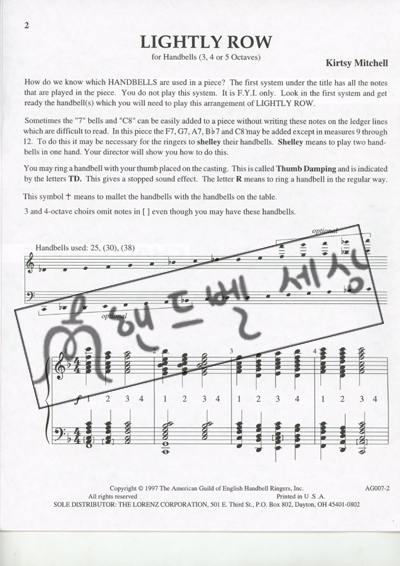 2
LIGHTLY ROW
for Handbells (3, 4 or 5 Octaves)
Kirtsy Mitchell
How do we know which HANDBELLS are used in a piece? The first system under the title has all the notes
that are played in the piece. You do not play this system. It is F.Y.I. only. Look in the first system and get
ready the handbell(s) which you will need to play this arrangement of LIGHTLY ROW.
Sometimes the "7" bells and "C8" can be easily added to a piece without writing these notes on the ledger lines
which are difficult to read. In this piece the F7, G7, A7, B♭7 and C8 may be added except in measures 9 through
12. To do this it may be necessary for the ringers to shelley their handbells. Shelley means to play two hand-
bells in one hand. Your director will show you how to do this.
You may ring a handbell with your thumb placed on the casting. This is called Thumb Damping and is indicated
by the letters TD. This gives a stopped sound effect. The letter R means to ring a handbell in the regular way.
This symbol ✝ means to mallet the handbells with the handbells on the table.
3 and 4-octave choirs omit notes in [ ] even though you may have these handbells.
optional
Handbells used: 25, (30), (38)
optional
핸드벨 세상
2 3 4
f 1 2 3 4 1 2 3 4 1 2 3 4 1 2 3 4
Copyright © 1997 The American Guild of English Handbell Ringers, Inc.
AG007-2
All rights reserved
Printed in U.S.A.
SOLE DISTRIBUTOR: THE LORENZ CORPORATION, 501 E. Third St., P.O. Box 802, Dayton, OH 45401-0802